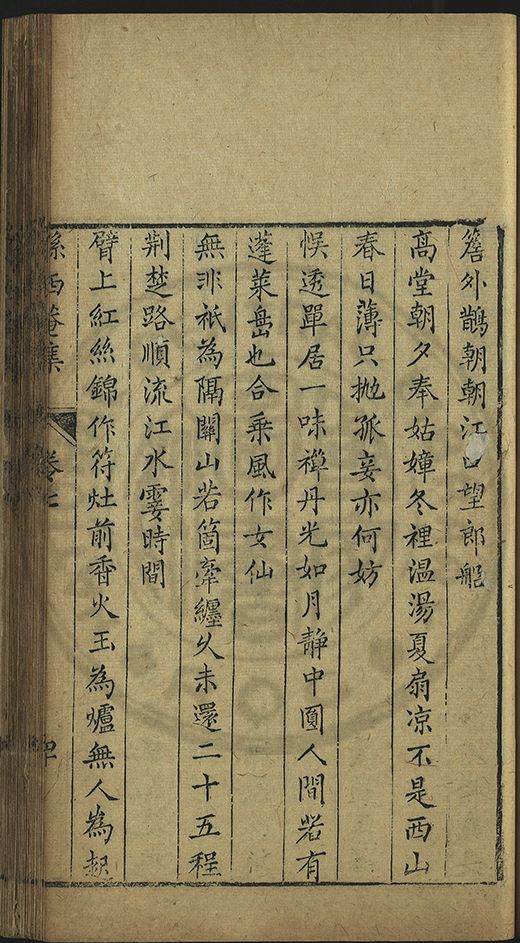 簷外鵲朝朝江口望郎船
高堂朝夕奉姑嫜冬裡温湯夏扇凉不是西山
春日薄只抛孤妾亦何妨
悞透單居一味禪丹光如月靜中圓人間若有
蓬萊島也合乘風作女仙
無非祇為隔關山若箇牽纏久未還二十五程
荆楚路順流江水霎時間
臂上紅絲錦作符灶前香火玉為爐無人為起
孫西菴集
卷七